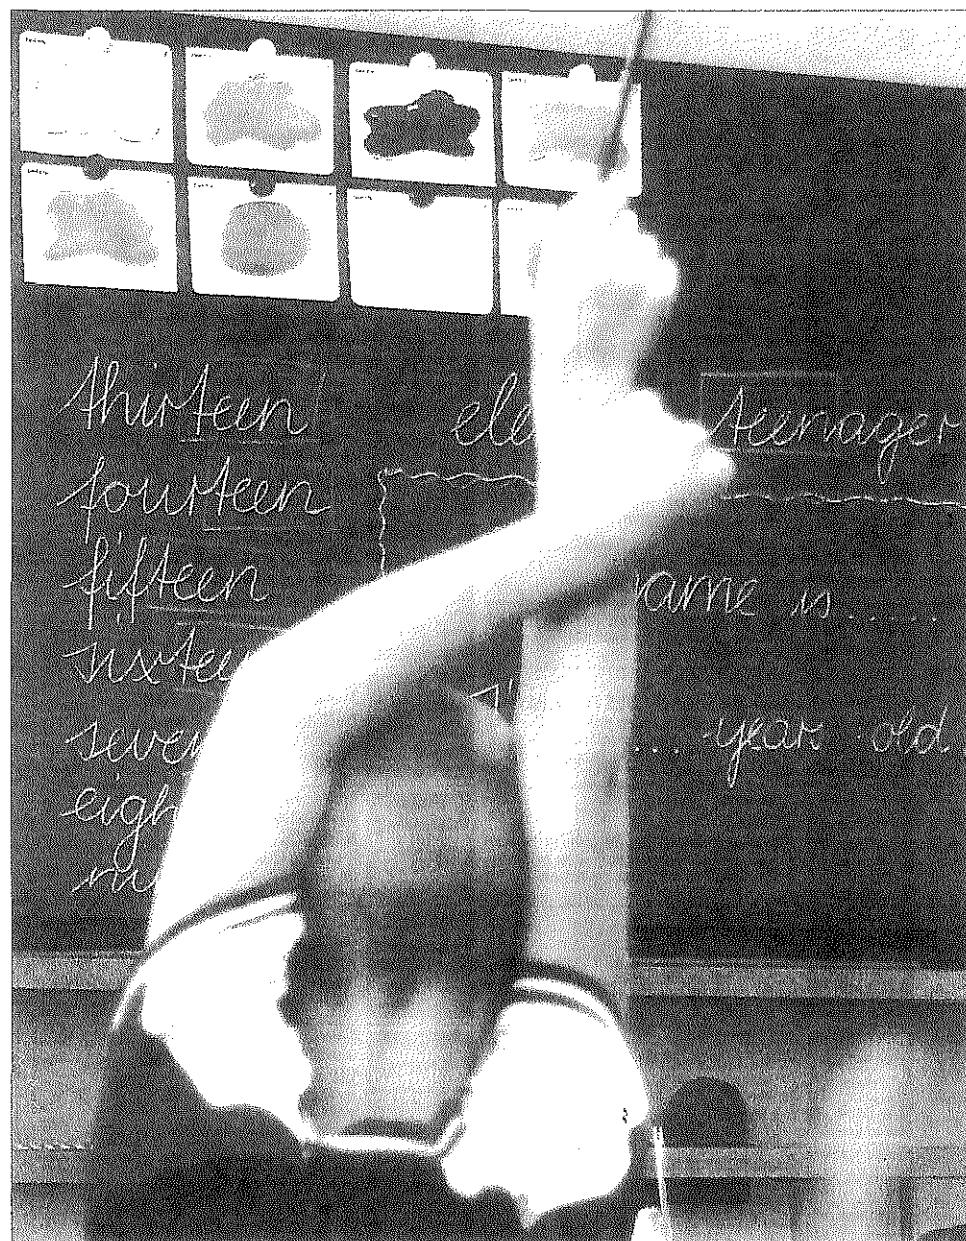 thirteen
fourteen
fifteen
sixtee
seven
eigh
ele teenager
ame is .....
.... year old.